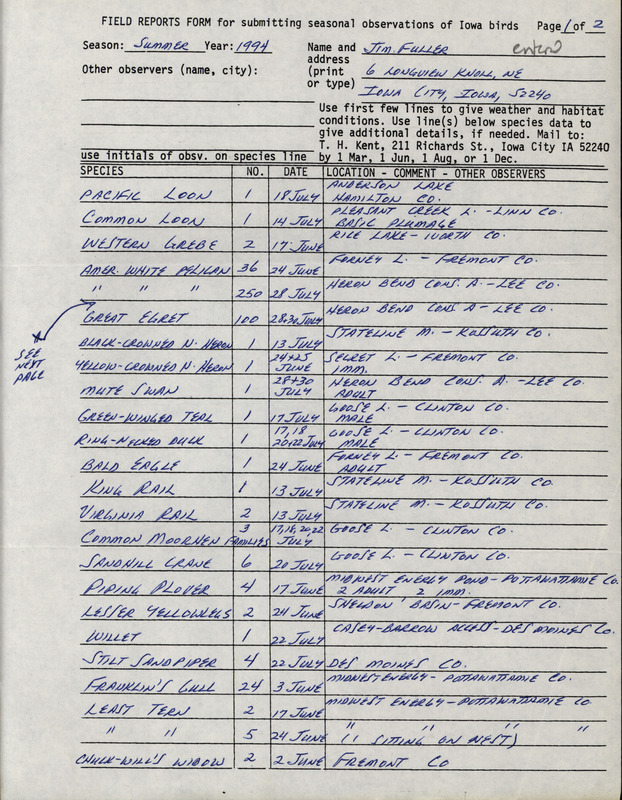 FIELD REPORTS FORM for submitting seasonal observations of Iowa birds Page 1 of 2
Season: SUMMER Year: 1994 Name and JIM FULLER entered
address
Other observers (name, city): (print 6 LONGVIEW KNOLL, NE
or type)
IOWA CITY, IOWA, 52240
Use first few lines to give weather and habitat
conditions. Use line(s) below species data to
give additional details, if needed. Mail to:
T. H. Kent, 211 Richards St., Iowa City IA 52240
use initials of obsv. on species line by 1 Mar, 1 Jun, 1 Aug, or 1 Dec.
SPECIES NO. DATE LOCATION - COMMENT - OTHER OBSERVERS
ANDERSON LAKE
PACIFIC LOON 1 18 JULY HAMILTON CO.
PLEASANT CREEK L. - LINN CO.
COMMON LOON 1 14 JULY BASIC PLUMAGE
WESTERN GREBE 2 17 JUNE RICE LAKE - WORTH CO.
AMER. WHITE PELICAN 36 24 JUNE FORNEY L. - FREMONT CO.
" " " 250 28 JULY HERON BEND CONS. A. - LEE CO.
GREAT EGRET 100 28+30 JULY HERON BEND CONS. A - LEE CO.
SEE
NEXT
PAGE
BLACK-CROWNED N. HERON 1 13 JULY STATELINE M. - KOSSUTH CO.
24+25 SECRET L. - FREMONT CO.
YELLOW-CROWNED N. HERON 1 JUNE IMM.
28+30 HERON BEND CONS. A. - LEE CO.
MUTE SWAN 1 JULY ADULT
GOOSE L. - CLINTON CO.
GREEN-WINGED TEAL 1 17 JULY MALE
17,18 GOOSE L. - CLINTON CO.
RING-NECKED DUCK 1 20,22 JULY MALE
FORNEY L. - FREMONT CO.
BALD EAGLE 1 24 JUNE ADULT
KING RAIL 1 13 JULY STATELINE M. - KOSSUTH CO.
VIRGINIA RAIL 2 13 JULY STATELINE M. - KOSSUTH CO.
3 17,18,20,22 GOOSE L. - CLINTON CO.
COMMON MOORHEN FAMILIES JULY
SANDHILL CRANE 6 20 JULY GOOSE L. - CLINTON CO.
MIDWEST ENERGY POND - POTTAWATTAMIE CO.
PIPING PLOVER 4 17 JUNE 2 ADULT 2 IMM.
LESSER YELLOWLEGS 2 24 JUNE SHELDON BASIN - FREMONT CO.
WILLET 1 22 JULY CASEY-BARROW ACCESS - DES MOINES CO.
STILT SANDPIPER 4 22 JULY DES MOINES CO.
FRANKLIN'S GULL 24 3 JUNE MIDWEST ENERGY - POTTAWATTAMIE CO.
LEAST TERN 2 17 JUNE MIDWEST ENERGY - POTTAWATTAMIE CO.
" " " "
" " 5 24 JUNE (1 SITTING ON NEST)
CHUCK-WILL'S WIDOW 2 2 JUNE FREMONT CO